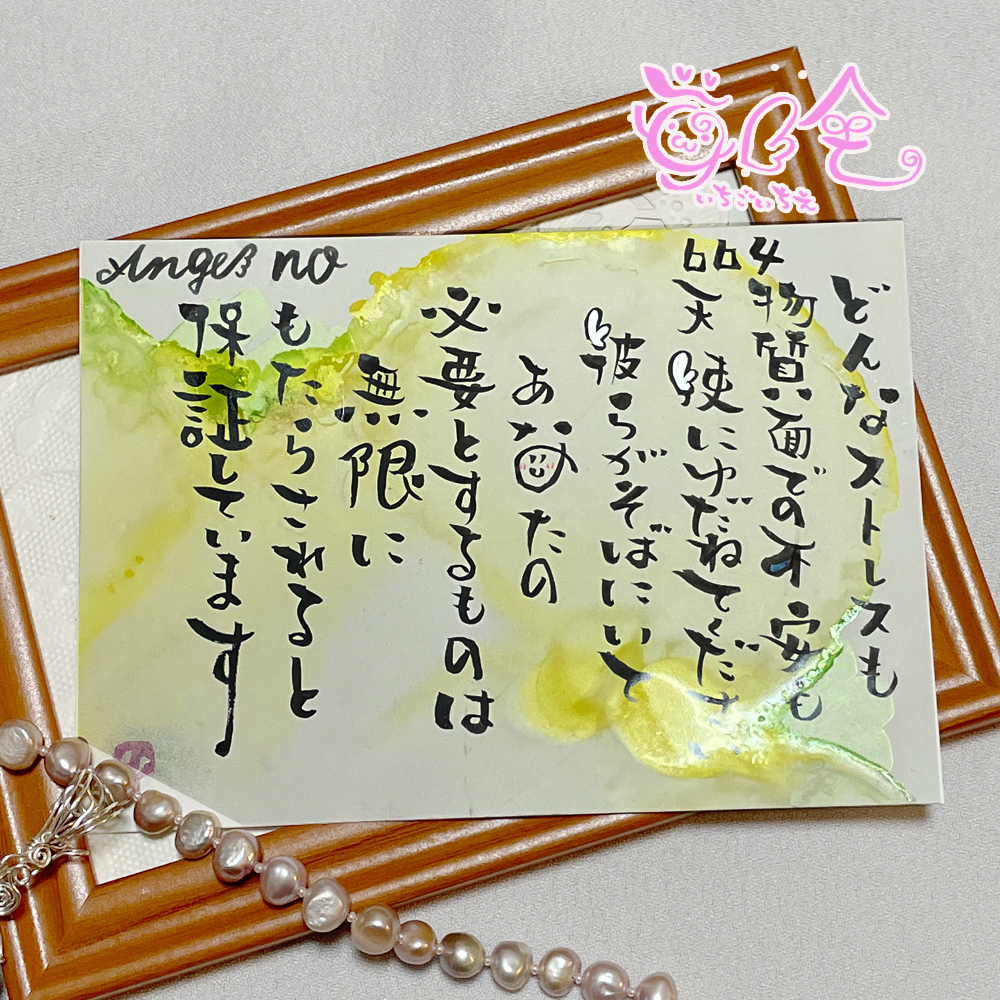 Angel no
664
どんなストレスも
物質面での不安も
天使にゆだねてくださ
彼らがそばにいて
あなたの
必要とするものは
無限に
もたらされると
保証しています
いちごいちえ